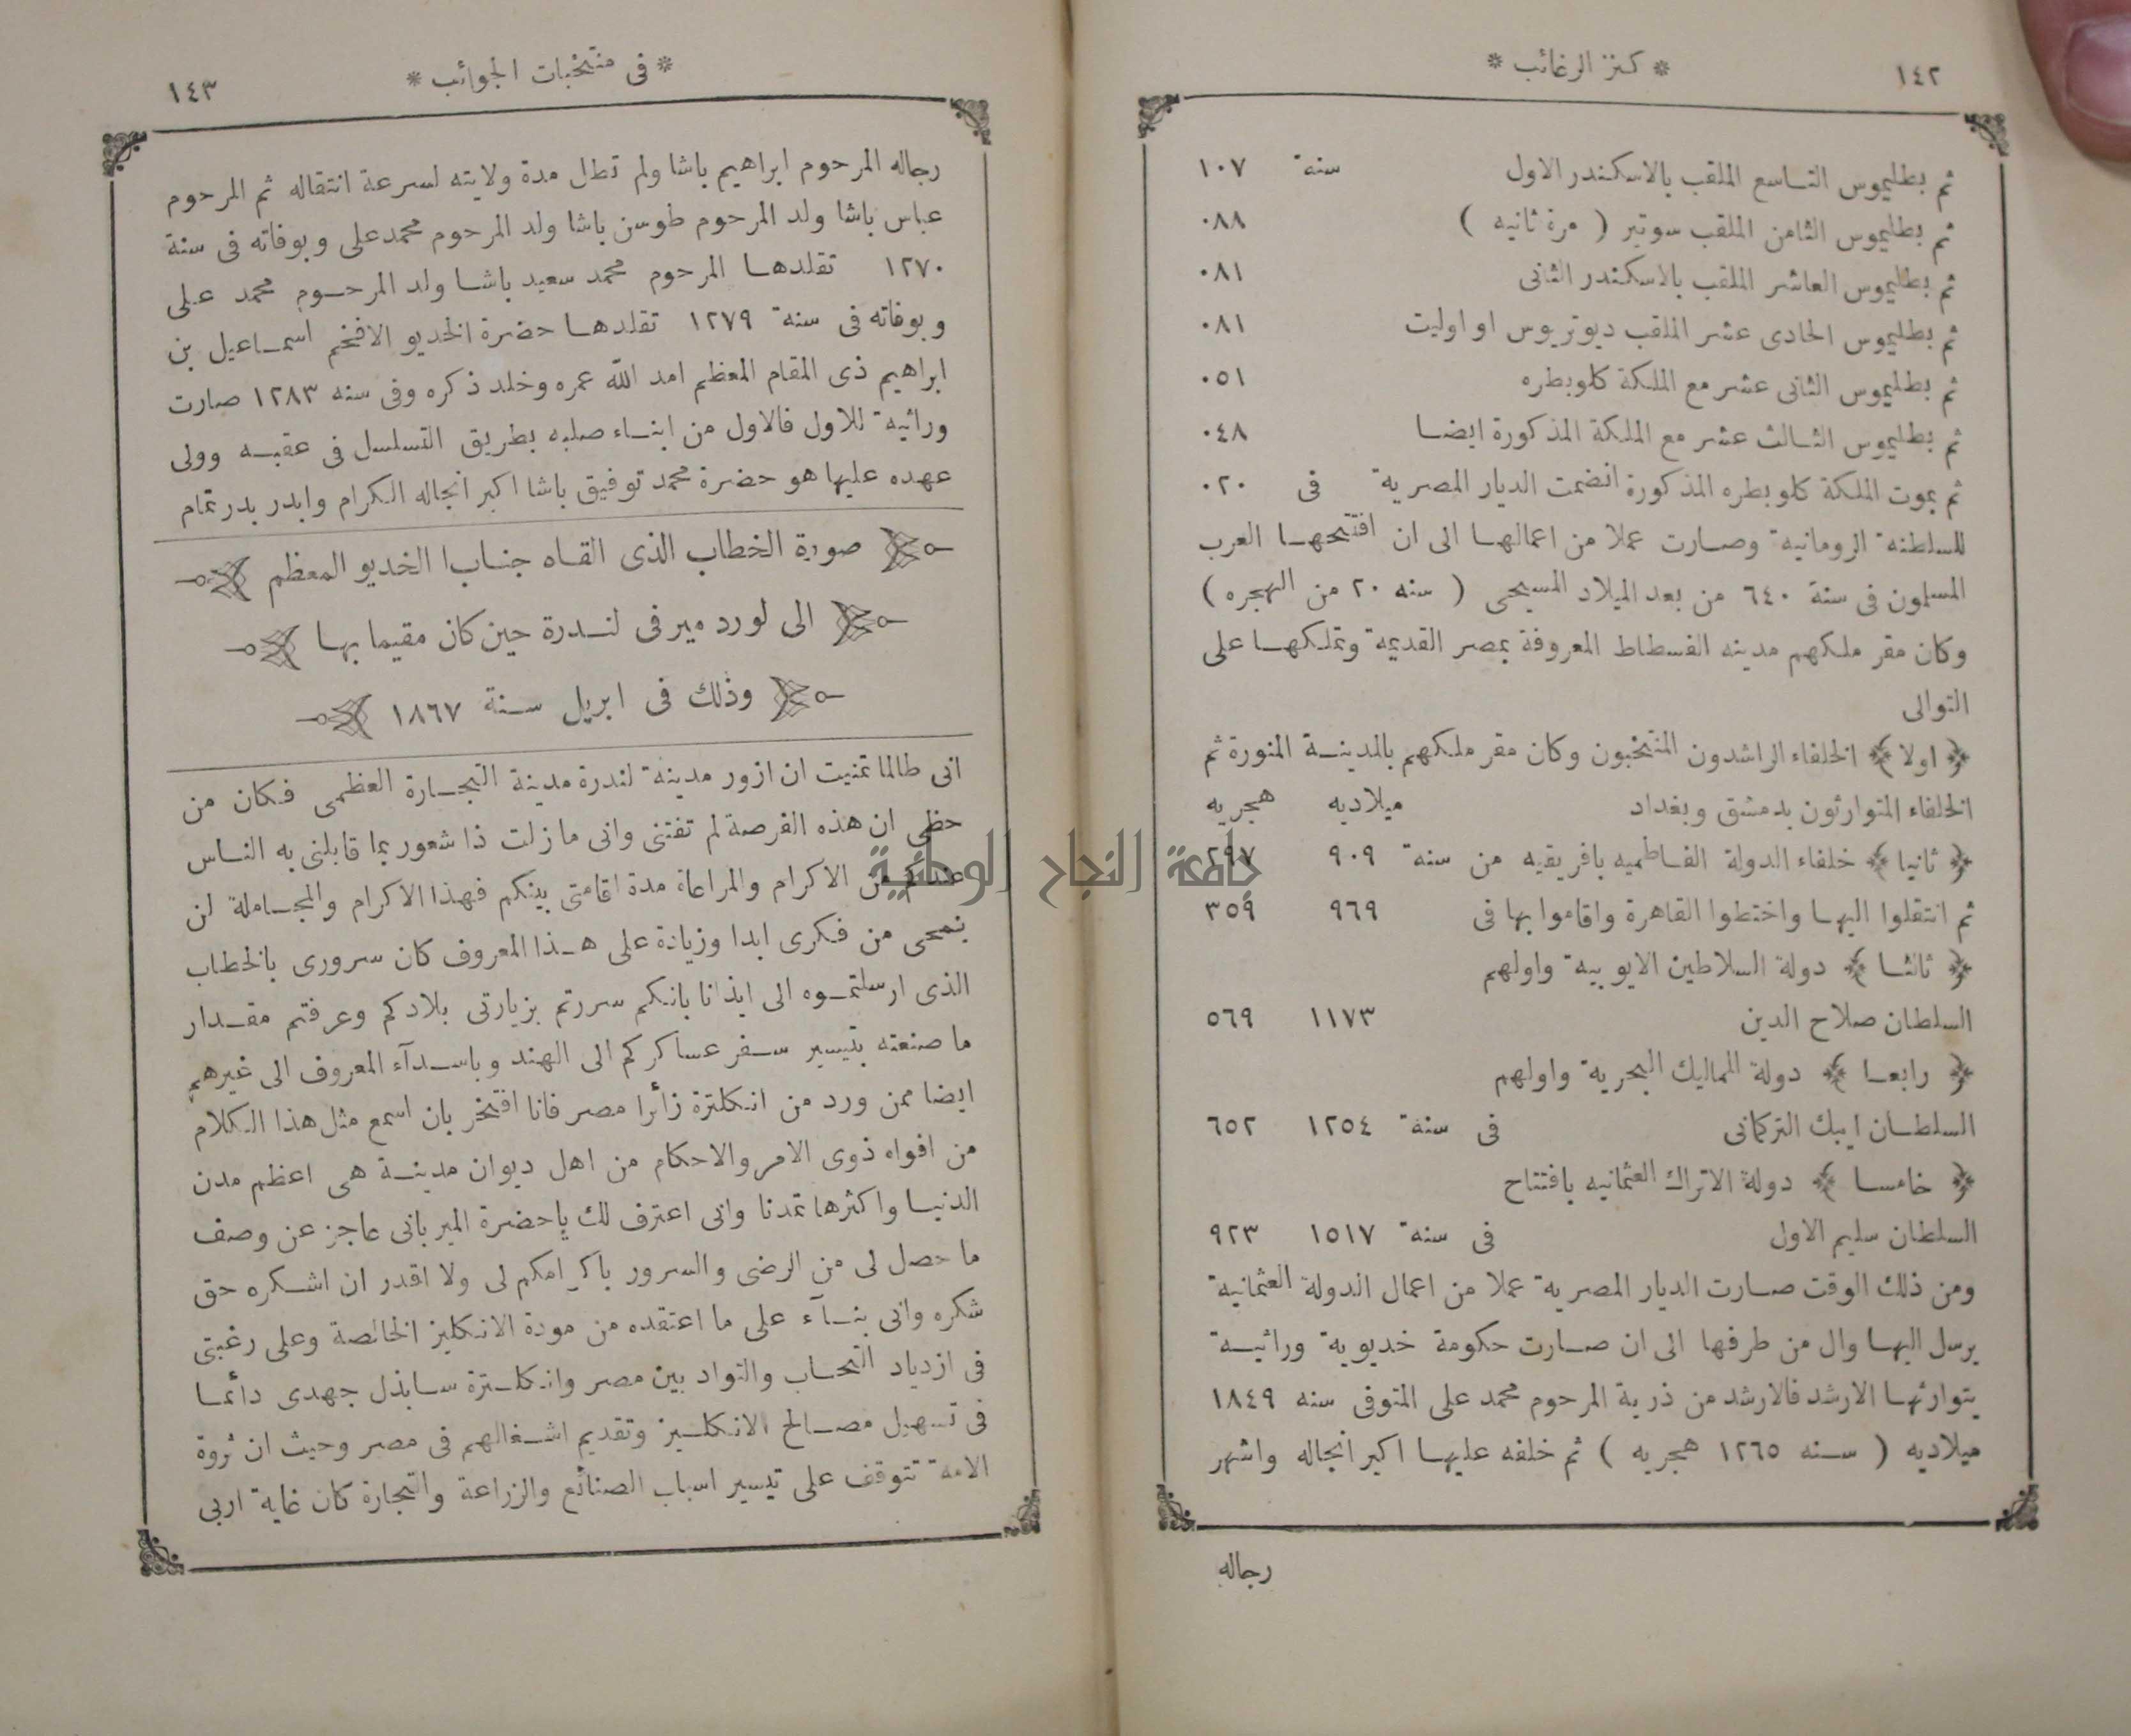 ١٤٢
* كنز الرغائب *
ثم بطليموس التاسع الملقب بالاسكندر الاول سنة ١٠٧
ثم بطليموس الثامن الملقب سوتير ( مرة ثانيه ) ٠٨٨
ثم بطليموس العاشر الملقب بالاسكندر الثانى ٠٨١
ثم بطليموس الحادى عشر الملقب ديونريوس او اوليت ٠٨١
ثم بطليموس الثانى عشر مع الملكة كلوبطره ٠٥١
ثم بطليموس الثالث عشر مع الملكة المذكورة ايضا ٠٤٨
ثم بموت الملكة كلوبطره المذكورة انضمت الديار المصرية فى ٠٢٠
للسلطنة الرومانية وصارت عملا من اعمالها الى ان افتتحها العرب
المسلمون فى سنة ٦٤٠ من بعد الميلاد المسيحى ( سنه ٢٠ من الهجره )
وكان مقر ملكهم مدينه الفسطاط المعروفة بمصر القديمة وتملكها على
التوالى
﴿ اولا ﴾ الخلفاء الراشدون المنتخبون وكان مقر ملكهم بالمدينة المنورة ثم
الخلفاء المتوارثون بدمشق وبغداد ميلاديه هجريه
﴿ ثانيا ﴾ خلفاء الدولة الفاطميه بافريقيه من سنة ٩٠٩ ٢٩٧
ثم انتقلوا اليها واختطوا القاهرة واقاموا بها فى ٩٦٩ ٣٥٩
﴿ ثالثا ﴾ دولة السلاطين الايوبية واولهم
السلطان صلاح الدين ١١٧٣ ٥٦٩
﴿ رابعا ﴾ دولة المماليك البحرية واولهم
السلطان ايبك التركمانى فى سنة ١٢٥٤ ٦٥٢
﴿ خامسا ﴾ دولة الاتراك العثمانيه بافتتاح
السلطان سليم الاول فى سنة ١٥١٧ ٩٢٣
ومن ذلك الوقت صارت الديار المصرية عملا من اعمال الدولة العثمانية
يرسل اليها وال من طرفها الى ان صارت حكومة خديوية وراثية
يتوارثها الارشد فالارشد من ذرية المرحوم محمد على المتوفى سنه ١٨٤٩
ميلاديه ( سنه ١٢٦٥ هجريه ) ثم خلفه عليها اكبر انجاله واشهر
رجاله
* فى منتخبات الجوائب *
١٤٣
رجاله المرحوم ابراهيم باشا ولم تطل مدة ولايته لسرعة انتقاله ثم المرحوم
عباس باشا ولد المرحوم طوسن باشا ولد المرحوم محمد على وبوفاته فى سنة
١٢٧٠ تقلدها المرحوم محمد سعيد باشا ولد المرحوم محمد على
وبوفاته فى سنة ١٢٧٩ تقلدها حضرة الخديو الافخم اسماعيل بن
ابراهيم ذى المقام المعظم امد الله عمره وخلد ذكره وفى سنه ١٢٨٣ صارت
وراثية للاول فالاول من ابناء صلبه بطريق التسلسل فى عقبه وولى
عهده عليها هو حضرة محمد توفيق باشا اكبر انجاله الكرام وابدر بدر تمام
صورة الخطاب الذى القاه جناب الخديو المعظم
الى لورد مير فى لندرة حين كان مقيما بها
وذلك فى ابريل سنة ١٨٦٧
انى طالما تمنيت ان ازور مدينة لندرة مدينة التجارة العظمى فكان من
حظى ان هذه الفرصة لم تفتنى وانى ما زلت ذا شعور بما قابلنى به الناس
عندكم من الاكرام والمراعاة مدة اقامتى بينكم فهذا الاكرام والمجاملة لن
يمحى من فكرى ابدا وزيادة على هذا المعروف كان سرورى بالخطاب
الذى ارسلتموه الى ايذانا بانكم سررتم بزيارتى بلادكم وعرفتم مقدار
ما صنعته بتيسير سفر عساكركم الى الهند وباسدآء المعروف الى غيرهم
ايضا ممن ورد من انكلترة زائرا مصر فانا افتخر بان اسمع مثل هذا الكلام
من افواه ذوى الامر والاحكام من اهل ديوان مدينة هى اعظم مدن
الدنيا واكثرها تمدنا وانى اعترف لك ياحضرة المير بانى عاجز عن وصف
ما حصل لى من الرضى والسرور باكرامكم لى ولا اقدر ان اشكره حق
شكره وانى بنآء على ما اعتقده من مودة الانكليز الخالصة وعلى رغبتى
فى ازدياد التحاب والتواد بين مصر وانكلترة سابذل جهدى دائما
فى تسهيل مصالح الانكليز وتقديم اشغالهم فى مصر وحيث ان ثروة
الامة تتوقف على تيسير اسباب الصنائع والزراعة والتجارة كان غاية اربى
جامعة النجاح الوطنية